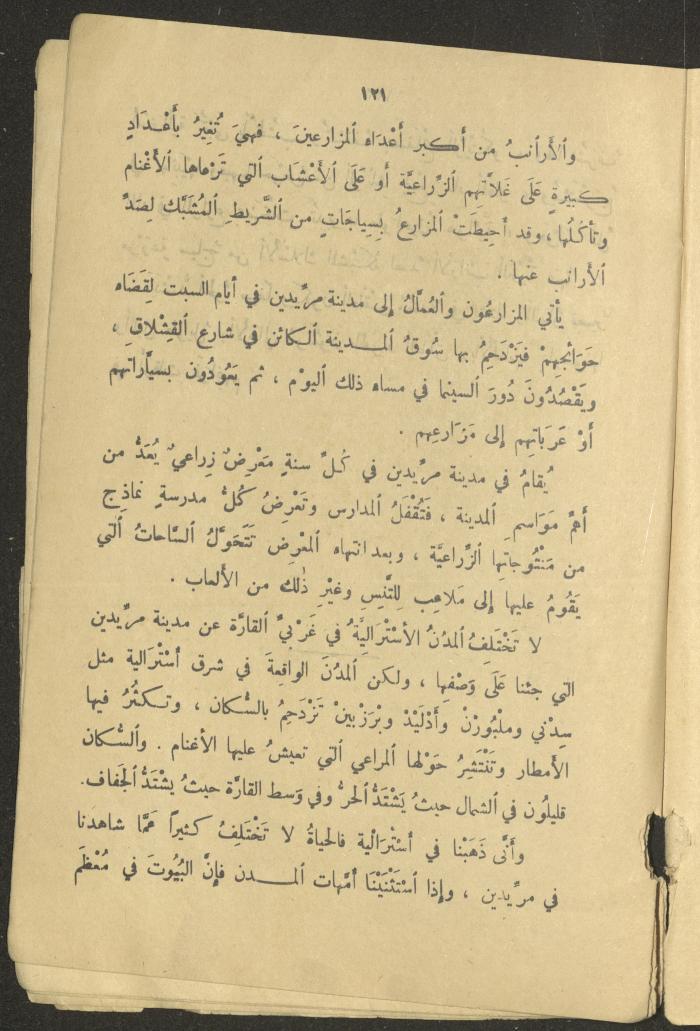 ١٢١
والأَرانبُ من أَكبر أَعْدَاءِ المزارعينَ ، فهيَ تُغِيرُ بأَعْدَادٍ
كبيرةٍ عَلَى غَلاَّتهِم الزِّراعيَّة أَو عَلَى الأَعْشاب التي تَرْعاها الأَغْنام
وتأكُلُها ، وقد أُحيطَتْ المزارعُ بِسِياجَاتٍ من الشَّريطِ المُشَبَّك لِصَدِّ
الأَرانب عنها .
يأتي المزارعُون والعُمَّالُ إلى مدينة مرِّيدين في أَيام السبت لِقَضَاء
حَوَائجِهِمْ فَيَزْدَحِمُ بها سُوقُ المدينة الكائن في شارع القِشْلاقِ ،
ويَقْصُدُونَ دُورَ السينما في مساء ذلك اليوْم ، ثم يَعُودُون بسيَّاراتهم
أَوْ عَرَباتِهِم إلى مَزَارعِهم .
يُقامُ في مدينة مرِّيدين في كُلِّ سنةٍ مَعْرِضٌ زِراعيٌ يُعَدُّ من
أَهمِّ مَوَاسمِ المدينة ، فَتُقْفَلُ المدارس وتَعْرِضُ كُلُّ مدرسةٍ نماذِج
من مَنْتُوجاتِها الزِّراعيَّة ، وبعد انتهاء المعْرِض تَتَحَوَّلُ السَّاحاتُ التي
يَقُومُ عليها إلى مَلاعِب لِلتَّنِسِ وغيْرِ ذٰلك من الأَلعاب .
لا تَخْتَلِفُ المدُنُ الأُسْتْرَاليَّةُ في غَرْبيِّ القارَّة عن مدينة مرِّيدين
التي جئنا عَلَى وَصْفِها ، ولكن المدُنَ الواقِعةَ في شرق أُسْتْرَالية مثل
سِدْني ومِلْبُورْنْ وأَدْلَيْدْ وبْرِزْبينْ تَزْدَحِمُ بالسُّكان ، وتكثُرُ فيها
الأَمطار وتَنْتَشِرُ حَوْلها المراعي التي تعيشُ عليها الأغنام . والسُّكان
قليلُون في الشمال حيثُ يَشْتَدُّ الحرُّ وفي وَسط القارَّة حيثُ يَشْتَدُّ الجَفاف.
وأَنَّى ذَهَبْنا في أُسْتْرَالْية فالحياةُ لا تَخْتَلِفُ كثيراً عمَّا شاهدنا
في مرِّيدين ، وإِذا اسْتَثْنَيْنا أُمَّهات المدن فإِنَّ البُيُوتَ في مُعْظَم